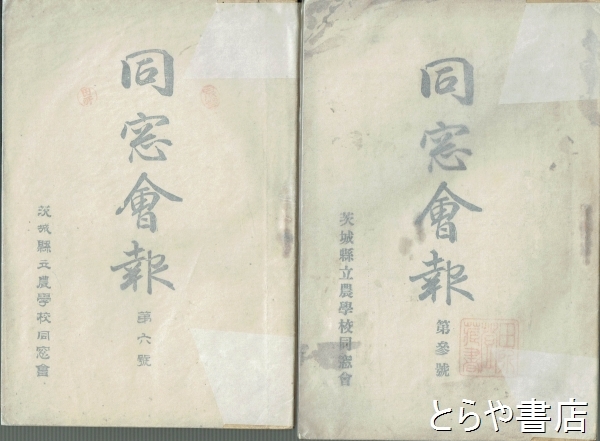 同窓會報
第六號
茨城縣立農學校同窓會
同窓會報
第參號
茨城縣立農學校同窓會
とらや書店